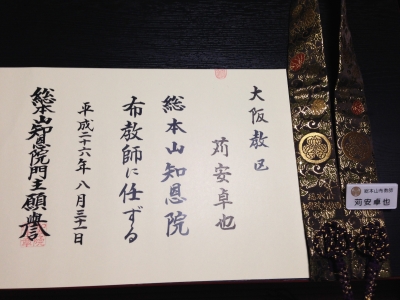 大阪教区
苅安卓也
総本山知恩院
布教師に任ずる
平成二十六年八月三十一日
総本山知恩院門主願譽
総本山布教師
苅安卓也